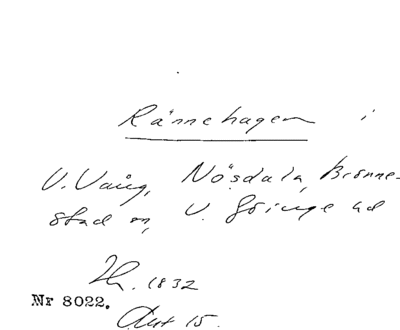 Rännehagen i
V. Vång, Nösdala, Brönne-
stad sn, V. Göinge hd
H. 1832
Nr 8022.
Akt 15.